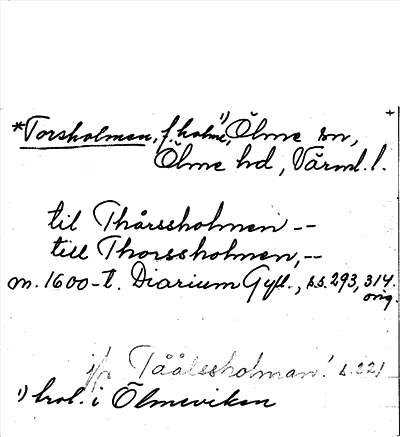 *Torsholmen, f. holme,¹⁾ Ölme sn,
Ölme hd, Värml. l.
til Thårssholmen --
till Thorssholmen, --
m. 1600-t. Diarium Gyll., s.s. 293, 314.
orig.
jfr Täälssholman! s. 221
¹⁾ trol. i Ölmeviken